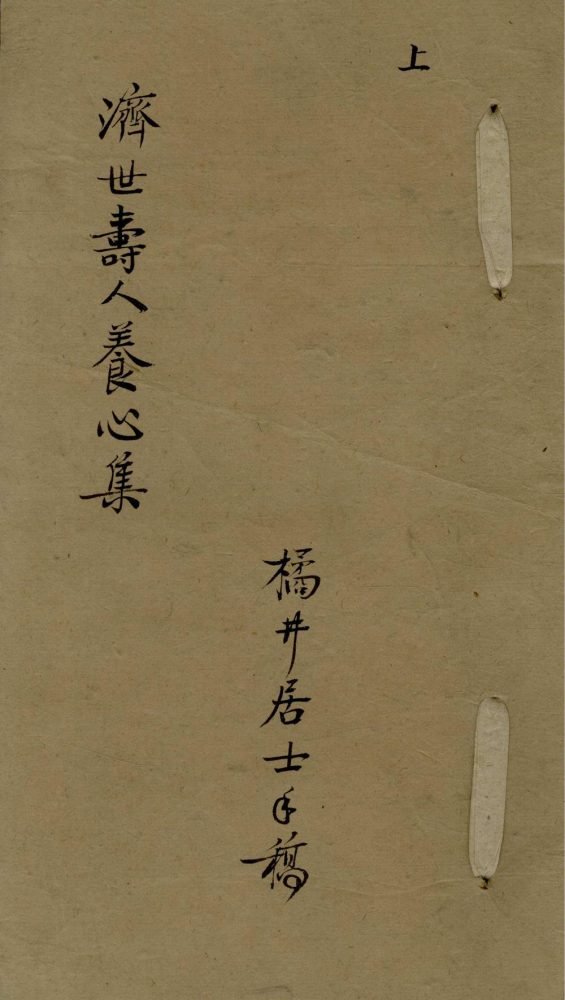 上
橘井居士手稿
濟世壽人養心集